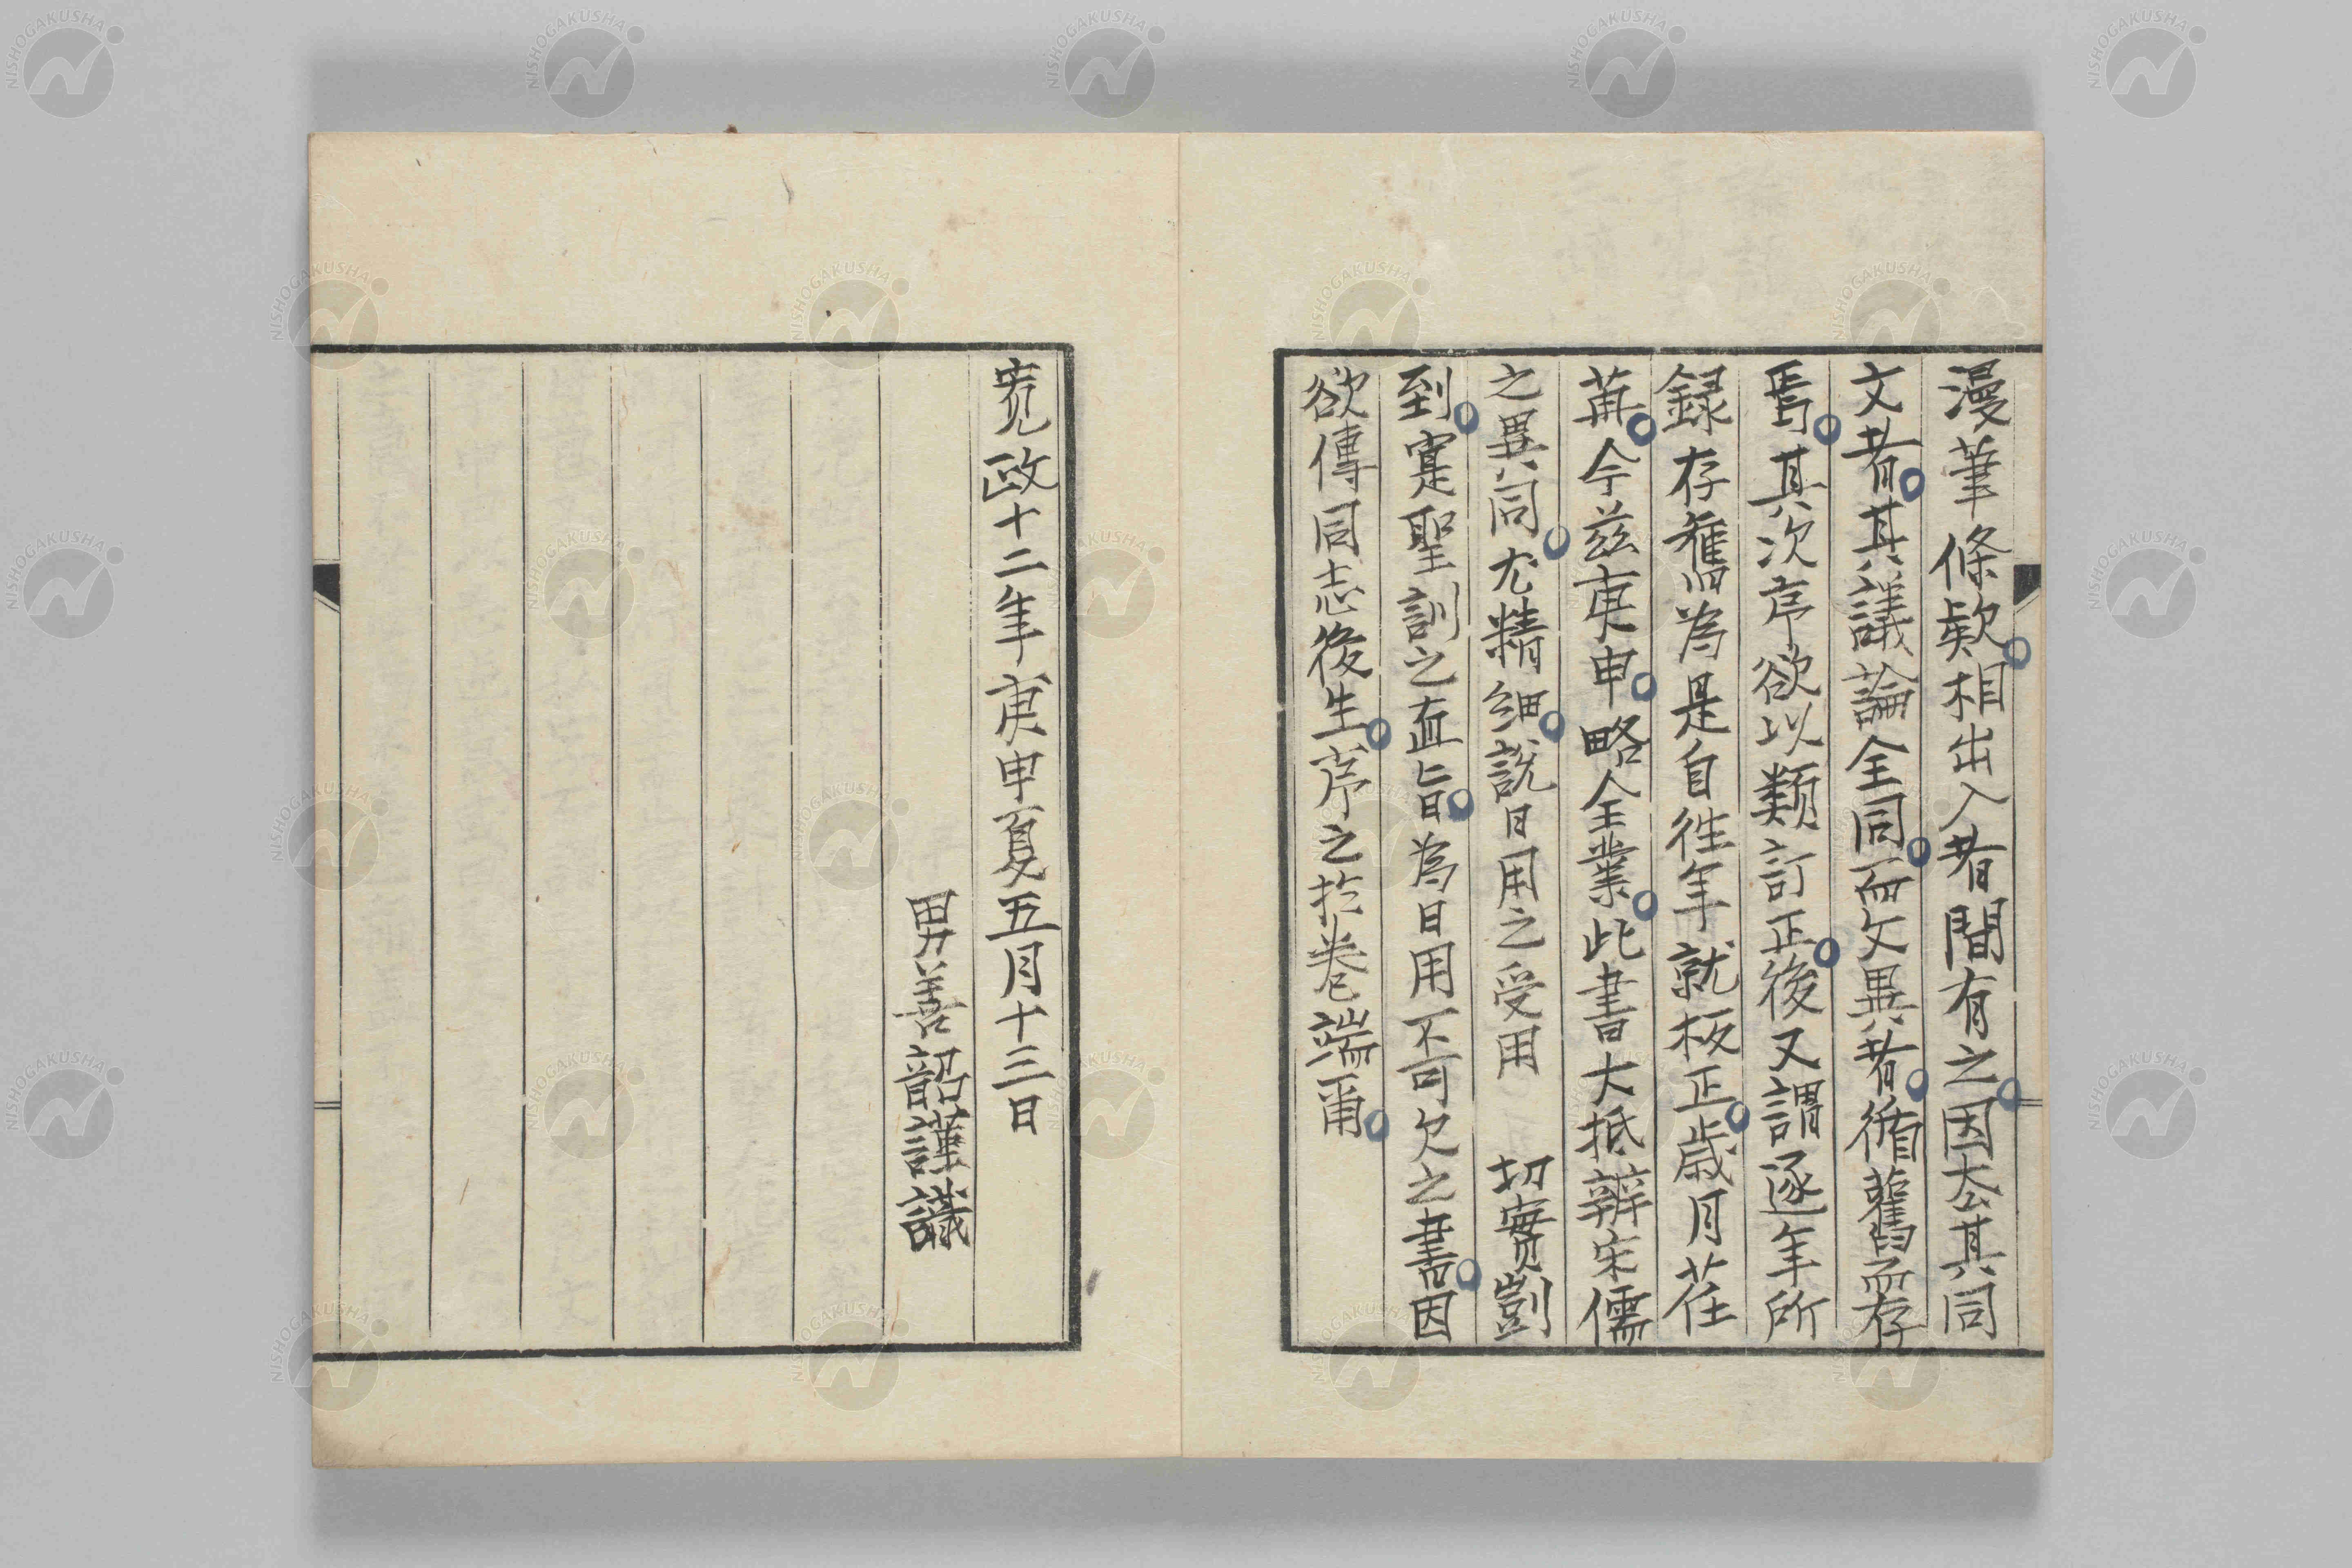 漫筆條欵相出入者間有之因去其同
文者其議論全同而文異者循舊而存
焉其次序欲以類訂正後又謂逐年所
録存舊為是自徃年就板正歳月荏
苒今兹庚申略全業此書大抵辨宋儒
之異同尤精細說日用之受用 切實剴
到寔聖訓之直旨為日用不可欠之書因
欲傳同志後生序之於卷端爾
寛政十二年庚申夏五月十三日
男善韶謹議
NISHOGAKUSHA